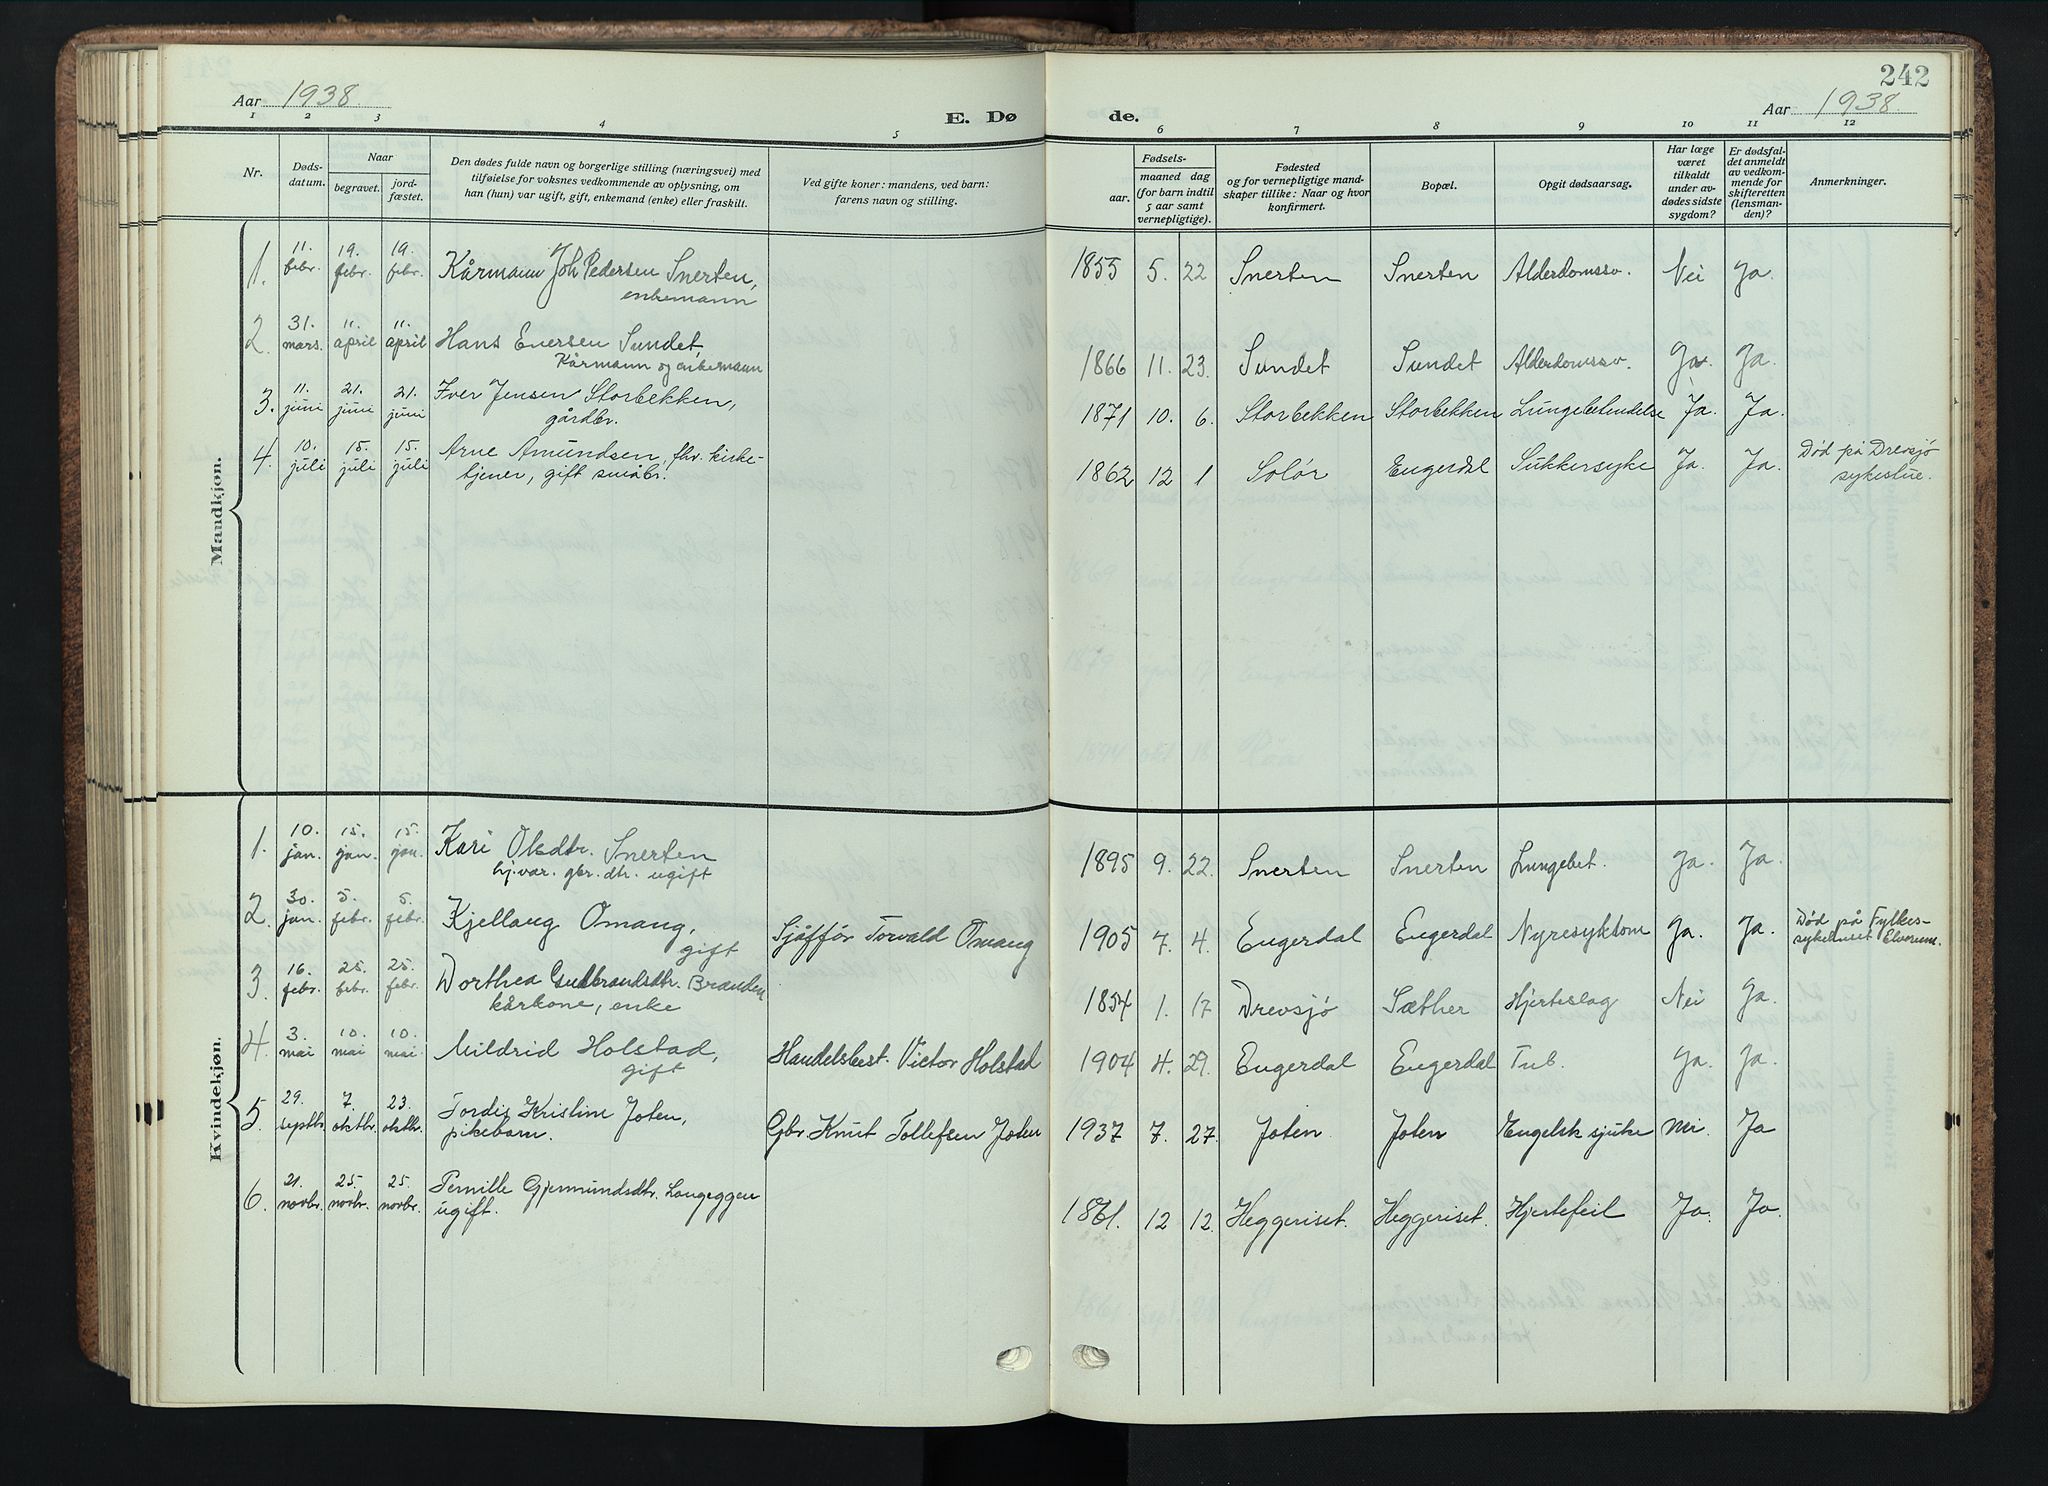 242
Aar 1938.
E. Dø
de.
Aar 1938
1 2 3 4 5 6 7 8 9 10 11 12
Nr.
Dødsdatum.
Naar
begravet.
jordfæstet.
Den dødes fulde navn og borgerlige stilling (næringsvei) med
tilføielse for voksnes vedkommende av oplysning, om
han (hun) var ugift, gift, enkemand (enke) eller fraskilt.
Ved gifte koner: mandens, ved barn:
farens navn og stilling.
Fødsels-
aar. maaned dag
(for barn indtil
5 aar samt
vernepligtige).
Fødested
og for vernepligtige mand-
skaper tillike: Naar og hvor
konfirmert.
Bopæl.
Opgit dødsaarsag.
Har læge
været
tilkaldt
under av-
dødes sidste
sygdom?
Er dødsfal-
det anmeldt
av vedkom-
mende for
skifteretten
(lensman-
den)?
Anmerkninger.
Mandkjøn.
1. 11. febr. 19. febr. 19. febr. Kårmann Joh. Pedersen Snerten, 1855 5. 22 Snerten Snerten Alderdomssv. Nei Ja.
enkemann
2. 31. mars. 11. april 11. april Hans Enersen Sundet, 1866 11. 23. Sundet Sundet Alderdomssv. Ja. Ja.
Kårmann og enkemann
3. 11. juni 21. juni 21. juni Iver Jensen Storbekken, 1871 10. 6. Storbekken Storbekken Lungebetendelse Ja. Ja.
gårdbr.
4. 10. juli 15. juli 15. juli Arne Amundsen, fhv. kirke- 1862 12 1 Solør Engerdal Sukkersyke Ja. Ja. Død på Drevsjø
tjener, gift småbr. sykestue.
Kvindekjøn.
1. 10. jan. 15. jan. 15. jan. Kari Olsdtr. Snerten 1895 9. 22. Snerten Snerten Lungebet. Ja. Ja.
hj.var. gbr. dtr. ugift
2. 30. jan. 5. febr. 5. febr. Kjellaug Omang, Sjåffør Torvald Omang 1905 7. 4. Engerdal Engerdal Nyresykdom Ja. Ja. Død på Fylkes-
gift sykehuset Elverum.
3. 16. febr. 25. febr. 25. febr. Dorthea Gudbrandsdtr. Brænden 1854 1. 17 Drevsjø Sæther Hjerteslag Nei Ja.
kårkone, enke
4. 3. mai 10. mai 10. mai. Mildrid Holstad, Handelsbest. Victor Holstad 1904 4. 29. Engerdal Engerdal Tub. Ja. Ja.
gift
5. 29. septbr. 7. oktbr. 23. oktbr. Tordis Kristine Joten, Gbr Knut Tollefsen Joten 1937 7. 27. Joten. Joten Engelsk sjuke nei. Ja
pikebarn.
6. 21. novbr. 25. novbr. 25. novbr. Pernille Gjermundsdtr. Langeggen 1861. 12 12. Heggeriset. Heggeriset. Hjertefeil Ja. Ja.
ugift.